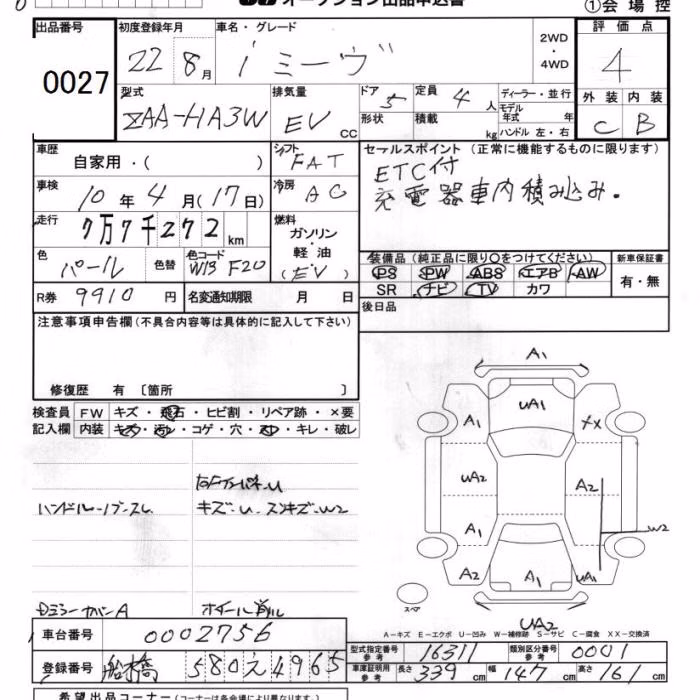 オークション出品申込書
①会場控
出品番号 0027
初度登録年月 22 8月
車名・グレード i ミーヴ
2WD・4WD
評価点 4
外装 C 内装 B
型式 ZAA-HA3W
排気量 EV CC
ドア 5 形状
定員 4人 積載 kg
ディーラー・並行
モデル年式 年
ハンドル 左・右
車歴 自家用・( )
シフト FAT
車検 10年4月(17日)
冷房 AC
セールスポイント (正常に機能するものに限ります)
ETC付
充電器車内積み込み.
走行 7万7千272km
燃料 ガソリン・軽油 (EV)
色 パール 色替
色コード W13 F20
装備品(純正品に限り○をつけてください)
PS PW ABS エアB AW
SR ナビ TV カワ
新車保証書 有・無
R券 9910円
名変通知期限 月 日
後日品
注意事項申告欄(不具合内容等は具体的に記入して下さい)
修復歴 有 〔箇所 〕
検査員記入欄
FW キズ・飛石・ヒビ割・リペア跡・×要
内装 キズ・汚レ・コゲ・穴・スレ・キレ・破レ
ハンドル・ノブ
キズ・U W2
A1
A1 UA1 XX
UA2 A2
A1 W2
A2 A1 UA1
UA2
スペア
A-キズ E-エクボ U-凹み W-補修跡 S-サビ C-腐食 XX-交換済
車台番号 0002756
登録番号 船橋 580 え 4965
型式指定番号 参考 16311
類別区分番号 参考 0001
車庫証明用 参考 長さ 339cm 幅 147cm 高さ 161cm
希望出品コーナー (コーナーは各会場により異なります。)